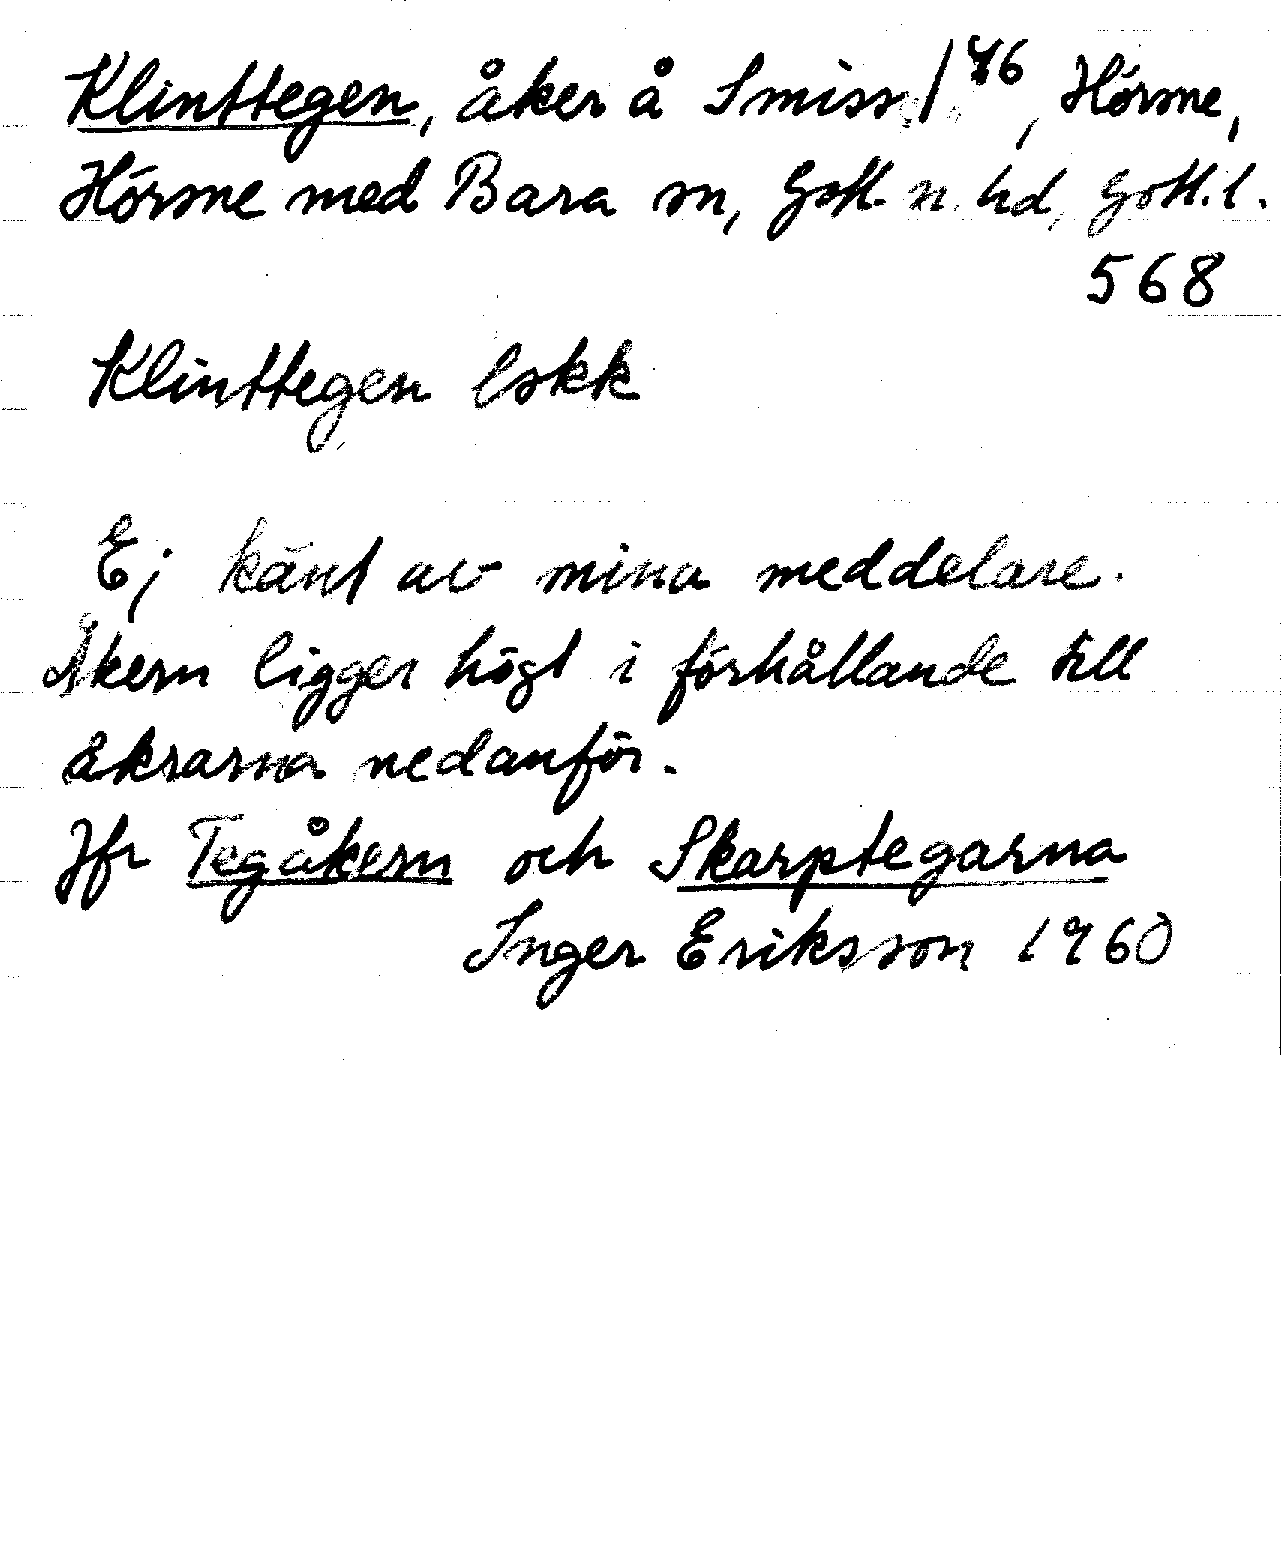 Klinttegen, åker å Smiss 1⁴⁶, Hörsne,
Hörsne med Bara sn, Gotl. n. hd, Gotl. l.
568
Klinttegen Lskk
Ej känt av mina meddelare.
Åkern ligger högt i förhållande till
åkrarna nedanför.
Jfr Tegåkern och Skarptegarna
Inger Eriksson 1960